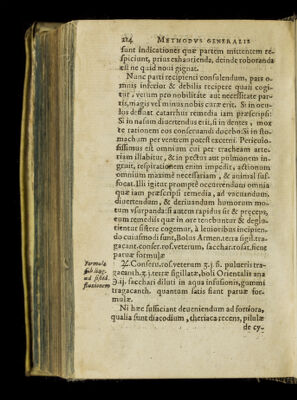 224 METHODVS GENERALIS
sunt indicationes quæ partem mittentem respiciunt,
prius exhaurienda, deinde roboranda
est ne quid noui gignat.
Nunc parti recipienti consulendum, pars omnis
inferior & debilis recipere quæ cogitur,
verum pro nobilitate aut necessitate partis,
magis vel minus nobis curæ erit. Si in oculos
defluat catarrhus remedia iam præscripsi:
Si in nasum diuertendus erit, si in dentes, mox
te rationem eos conseruandi docebo: Si in stomachum
per ventrem potest excerni. Periculosissimus
est omnium cùm per tracheam arteriam
illabitur, & in pectus aut pulmonem ingruit,
respirationem enim impedit, actionum
omnium maximè necessariam, & animal suffocat.
Illi igitur promptè occurrendum omnia
quæ iam præscripsi remedia, ad vacuandum,
diuertendum, & deriuandum humorem motum
vsurpanda: si autem rapidus sit & præceps,
eum remediis quæ in ore tenebuntur & deglutientur
sistere cogemur, à leuioribus incipiendo
cuiusmodi sunt, Bolus Armen. terra sigil. tragacant.
conser. ros. veterum, sacchar. rosat. fient
paruæ formulæ
Formula
℞. Conseru. ros. veterum ʒ. j. ß. pulueris tragacanth.
ʒ. j. terræ sigillatæ, boli Orientalis ana
℈. ij. sacchari diluti in aqua infusionis, gummi
tragacanth. quantum satis fiant paruæ formulæ.
Ni hæc sufficiant deueniendum ad fortiora,
qualia sunt diacodium, theriaca recens, pilulæ
de cy-